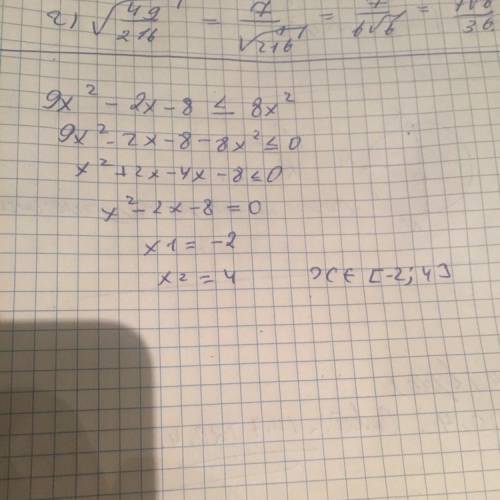 2) √49/216 = 7/√216 = 7/6√6 = 7√6/36
9x² - 2x - 8 ≤ 8x²
9x² - 2x - 8 - 8x² ≤ 0
x² + 2x - 4x - 8 ≤ 0
x² - 2x - 8 = 0
x1 = -2
x2 = 4 x ∈ [-2; 4]